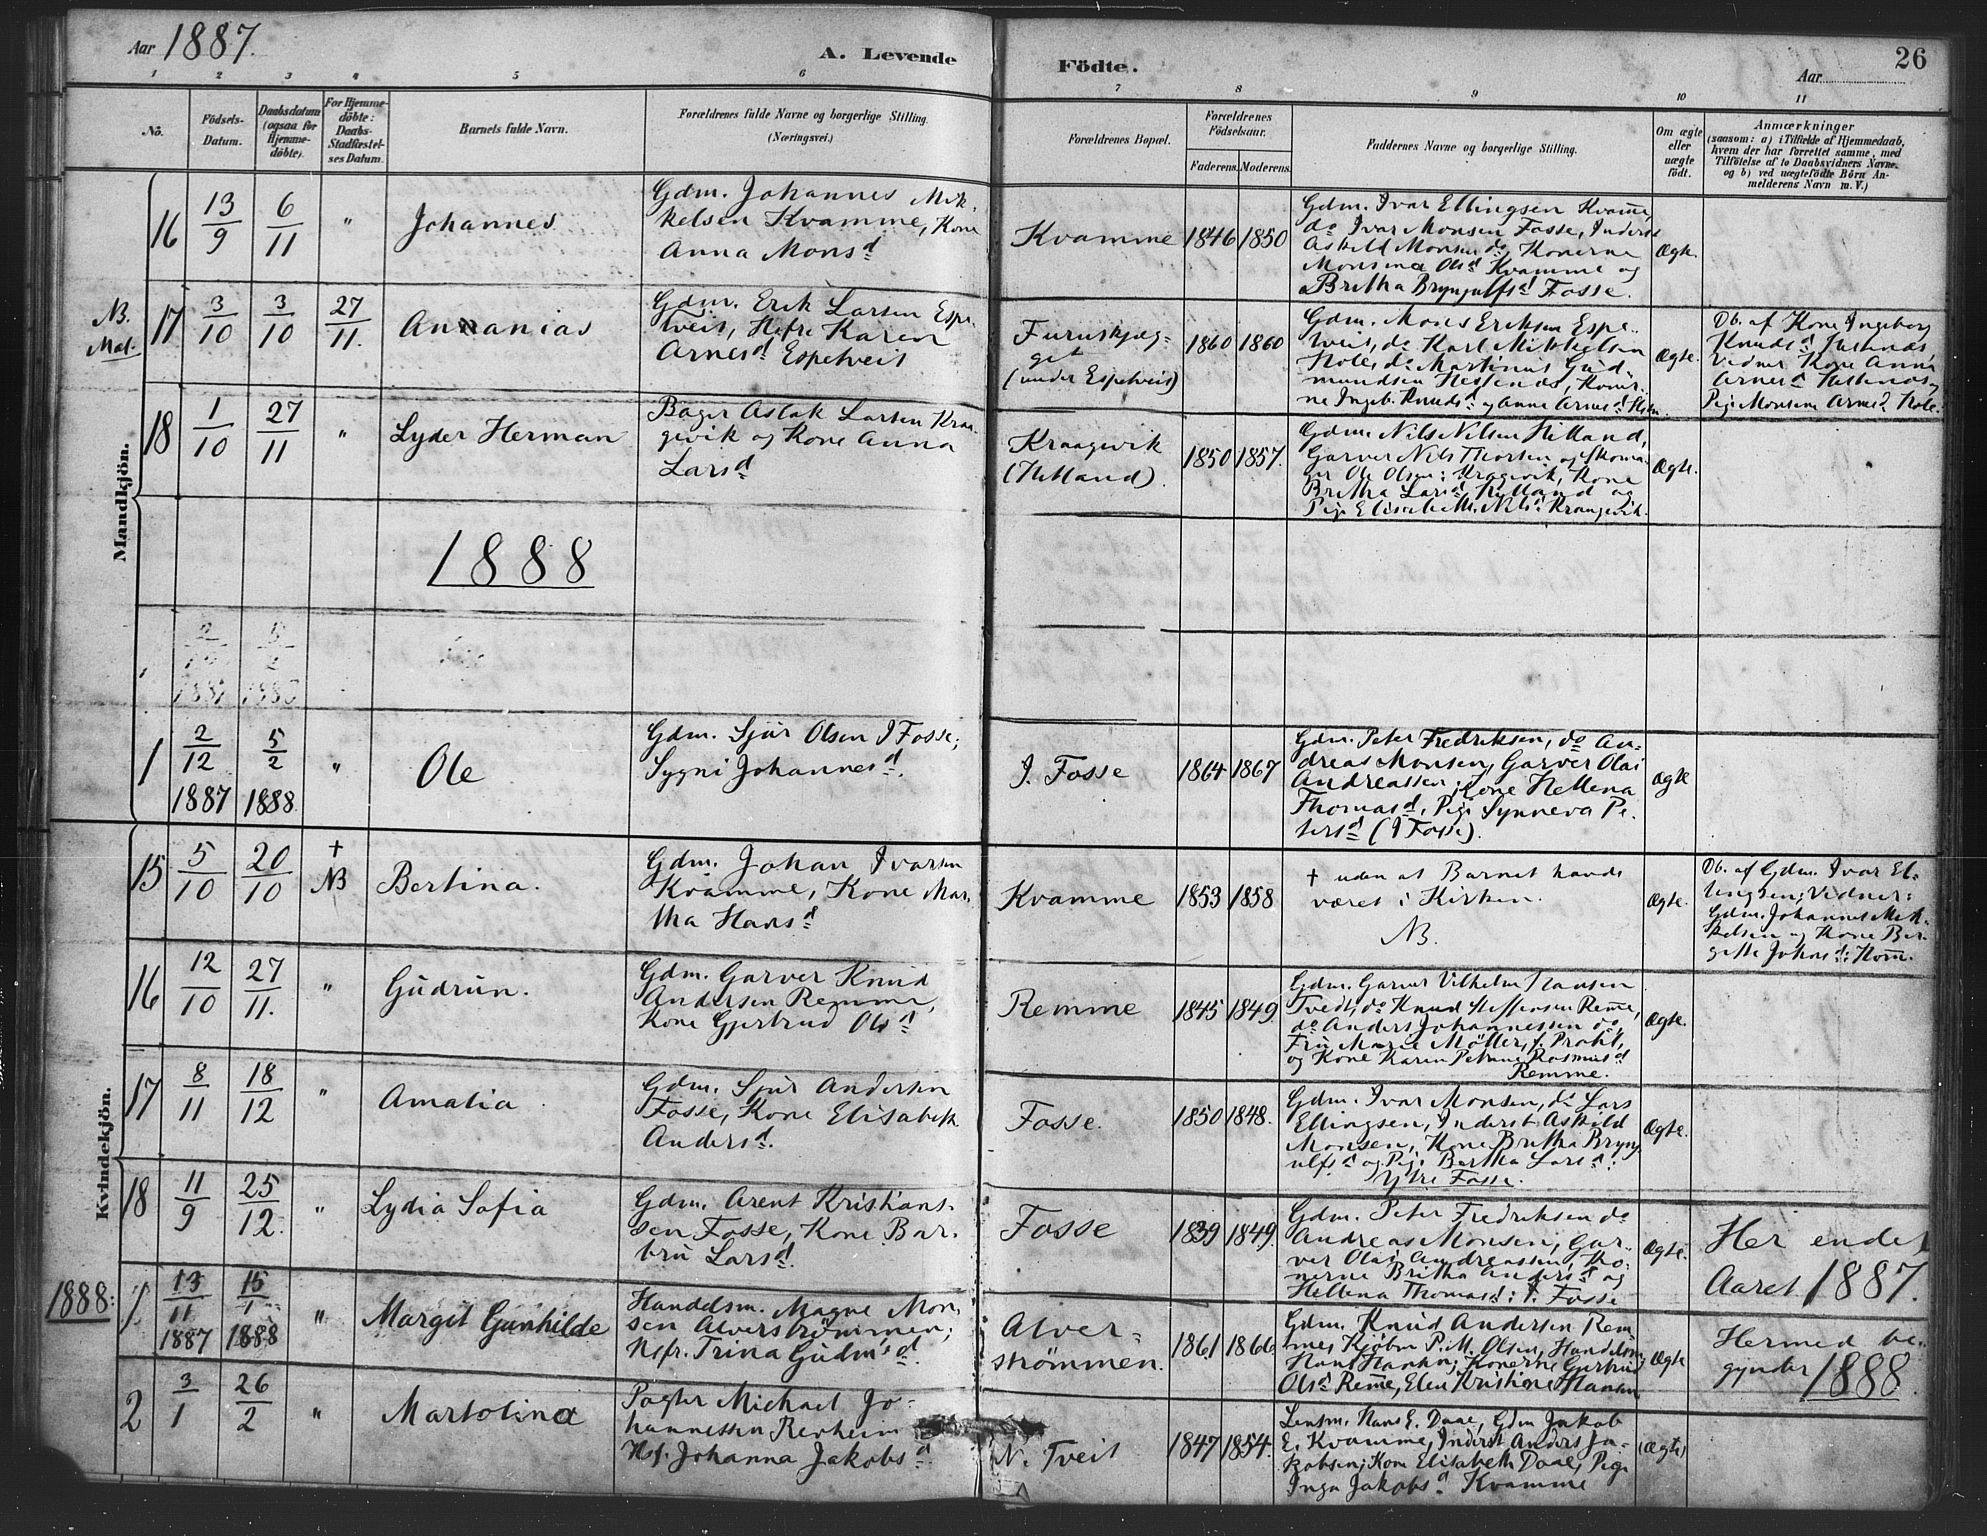 Aar 1887.
A. Levende
Födte.
Aar
26
1 2 3 4 5 6 7 8 9 10 11
No.
Födsels-Datum.
Daabsdatum (ogsaa for Hjemme-döbte).
For Hjemme-döbte: Daabs-Stadfæstel-ses Datum.
Barnets fulde Navn.
Forældrenes fulde Navne og borgerlige Stilling.
(Næringsvei.)
Forældrenes Bopæl.
Forældrenes Födselsaar.
Faderens. Moderens.
Faddernes Navne og borgerlige Stilling.
Om ægte eller uægte födt.
Anmærkninger
(saasom: a) i Tilfælde af Hjemmedaab,
hvem der har forrettet samme, med
Tilföielse af to Daabsvidners Navne.
og b) ved uægtefödte Börn An-
melderens Navn m. V.)
Mandkjön.
16 13/9 6/11 " Johannes
Gdm. Johannes Mik-
kelsen Kvamme, Kone
Anna Monsd
Kvamme 1846 1850
Gdm. Ivar Ellingsen Kvamme,
do Ivar Monsen Fosse, Inderst
Askild Monsen do, Konerne
Monsine Olsd Kvamme og
Britha Brynjulfsd Fosse.
Ægte.
NB.
17 3/10 3/10 27/11. Annanias
Gdm. Erik Larsen Espe-
tveit, Hsfr. Karen
Arnesd Espetveit
Furuskjeg-
get
(under Espetveit)
1860 1860
Gdm. Mons Eriksen Espe-
tveit, do Karl Mikkelsen
Hole, do Martinus Gud-
mundsen
ne Ingeb. Knudsd og Anne Arnesd
Ægte.
Db. af Kone Ingeborg
Knudsd
Vidner Kone Anne
Arnesd
Pige Monsine Arnesd Hole.
18 1/10 27/11 " Lyder Herman
Bager Aslak Larsen Kraa-
gevik og Kone Anna
Larsd
Kraagevik
(Hetland).
1850 1857.
Gdm. Nils Nilsen
Garver Nils Thorsen og Skoma-
ger Ole Olsen i Kragevik, Kone
Britha Larsd og
Pige Elisabeth Nilsd Kraagevik.
Ægte.
1888
1 2/12 1887 5/2 1888 " Ole
Gdm. Sjur Olsen I Fosse;
Sygni Johannesd.
I. Fosse 1864 1867
Gdm. Peter Fredriksen, do An-
dreas Monsen, Garver Olai
Andreassen, Kone Hellena
Thomasd, Pige Synneva Pe-
tersd (I Fosse).
Ægte
Kvindekjön.
15 5/10 20/10 † NB Bertina.
Gdm. Johan Ivarsen
Kvamme, Kone Mar-
tha Hansd
Kvamme 1853 1858
† uden at Barnet havde
været i Kirken.
NB.
Ægte.
Db. af Gdm. Ivar El-
lingsen; Vidner:
Gdm. Johannes Mik-
kelsen og Kone Ber-
gitte
16 12/10 27/11. " Gudrun.
Gdm. Garver Knud
Andersen Remme,
Kone Gjertrud Olsd
Remme 1845 1849.
Gdm. Garver Vilhelm Hansen
Tvedt, do Knud Steffensen Remme,
do Anders Johannessen do,
Fru Marie Möller, f. Prahl,
og Kone Karen Petrine Rasmusd
Remme.
Ægte.
17 8/11 18/12 " Amalia
Gdm. Sjur Andersen
Fosse, Kone Elisabeth
Andersd.
Fosse. 1850 1848.
Gdm. Ivar Monsen, do Lars
Ellingsen, Inderst Askild
Monsen, Kone Britha Bryn-
ulfsd og Pige Bertha Larsd:
Ytre Fosse.
Ægte.
18 11/9 25/12. " Lydia Sofia
Gdm. Arent Kristians-
sen Fosse, Kone Bar-
bru Larsd.
Fosse 1839 1849.
Gdm. Peter Fredriksen do
Andreas Monsen, Gar-
ver Olai Andreassen, Ko-
nerne Britha Andersd og
Hellena Thomasd: I. Fosse
Ægte.
Her endet
Aaret 1887.
1888:
1 13/11 1887 15/1 1888 " Margit Gunhilde
Handelsm. Magne Mon-
sen Alverströmmen;
Hsfr. Trina Gudm'sd.
Alver-
strømmen.
1861 1866
Gdm. Knud Andersen Rem-
me, Kjøbm P. M. Olsen, Handelsm
Konerne Gjertrud
Olsd Remme, Elen Kristine
Ægte
Hermed be-
gynder 1888.
2 3/1 26/2 " Martolina
Pagter Michael Jo-
hannessen Revheim
Hsf. Johanna Jakobsd.
N. Tveit 1847 1854.
Lensm. Hans E. Daae, Gdm Jakob
E. Kvamme, Inderst Anders Ja-
kobsen; Kone Elisabeth Daae, Pige
Inga Jakobsd Kvamme
(Ægte)